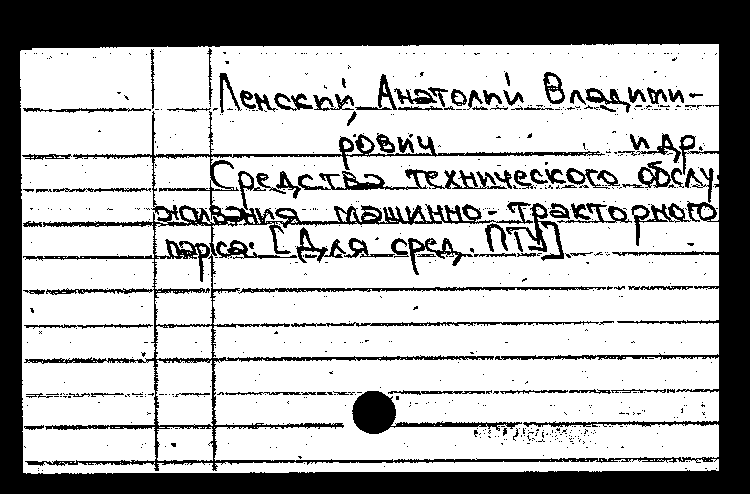 Ленский Анатолий Владими-
рович и др.
Средства технического обслу-
живания машинно-тракторного
парка: [Для сред. ПТУ]